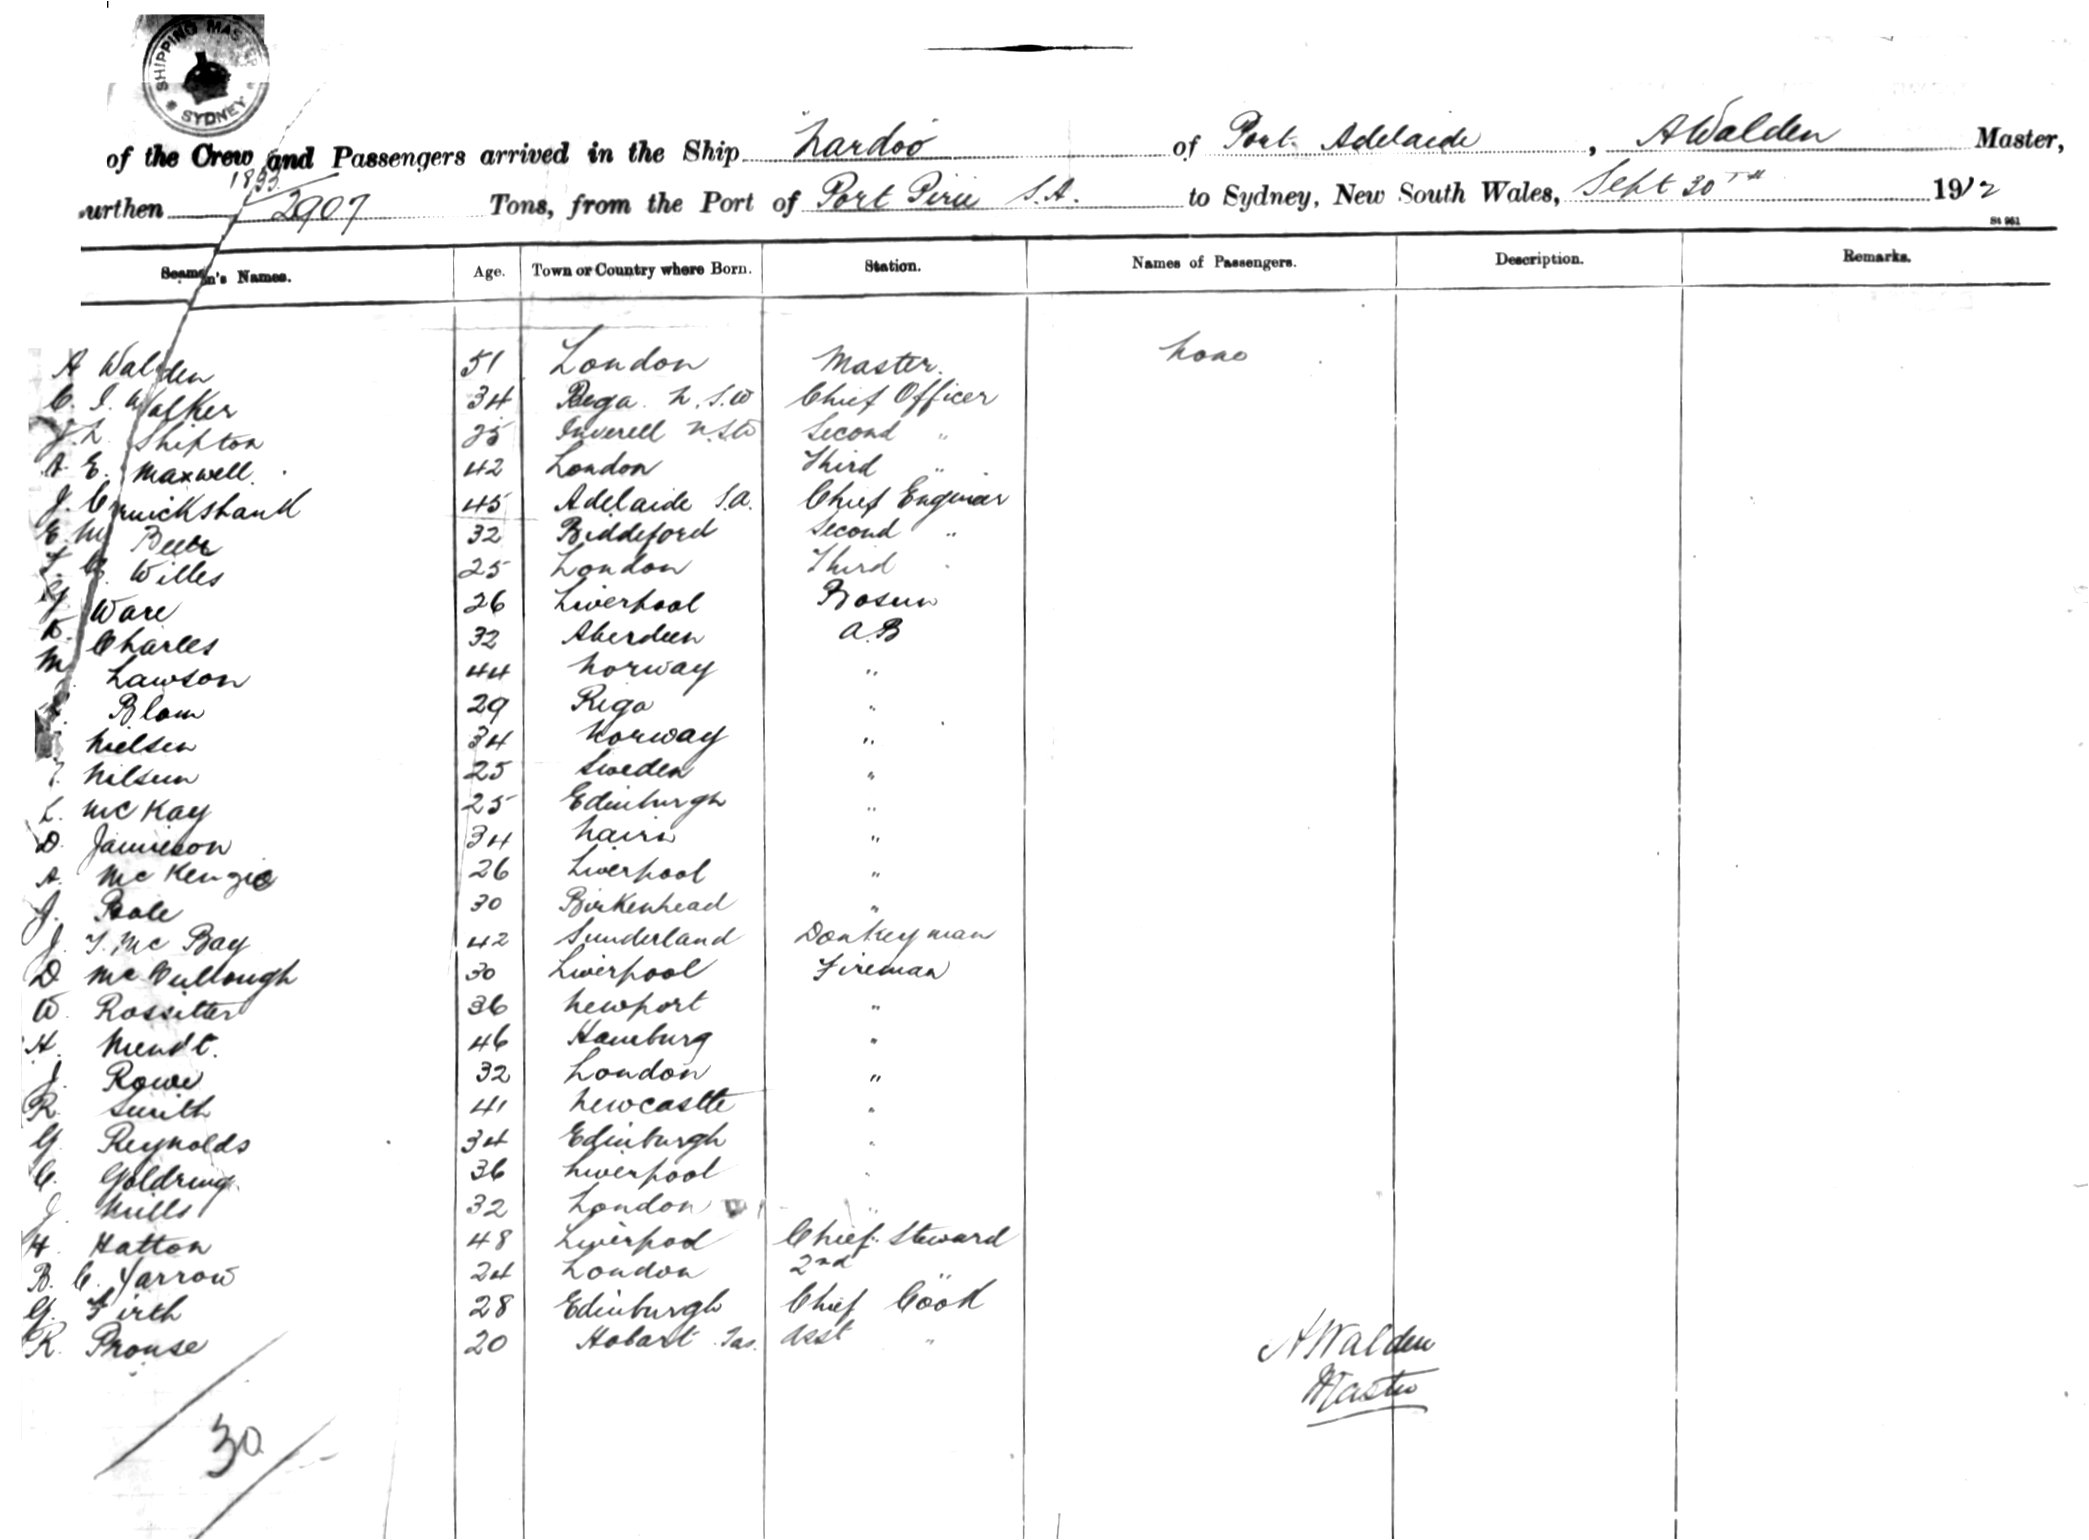 SHIPPING MASTER
SYDNEY
of the Crew and Passengers arrived in the Ship Nardoo of Port Adelaide, A Walden Master,
urthen 2907 Tons, from the Port of Port Pirie S.A. to Sydney, New South Wales, Sept 30TH 1912
St 961
Seamen's Names. Age. Town or Country where Born. Station. Names of Passengers. Description. Remarks.
A Walden 51 London Master. None
C. I. Walker 34 Bega. N.S.W Chief Officer
J. L. Shipton 25 Inverell N.S.W Second "
A. E. Maxwell. 42 London Third "
J. Cruickshank 45 Adelaide S.A. Chief Engineer
E. M. Beer 32 Biddeford Second "
Willes 25 London Third
G. Ware 26 Liverpool Bosun
D. Charles 32 Aberdeen A.B
M. Lawson 44 Norway "
Blom 29 Riga "
Nielsen 34 Norway "
Nilsun 25 Sweden "
L. McKay 25 Edinburgh "
D. Jamieson 34 Nairn "
A. McKenzie 26 Liverpool "
J. Bale 30 Birkenhead "
J. T. McBay 42 Sunderland Donkeyman
D McCullough 30 Liverpool Fireman
W. Rossitter 36 Newport "
H. Mendt. 46 Hamburg "
J. Rowe 32 London "
R. Smith 41 Newcastle "
G. Reynolds 34 Edinburgh "
C. Goldring. 36 Liverpool "
J. Mills 32 London "
H. Hatton 48 Liverpool Chief Steward
B. C. Yarrow 24 London 2nd "
G. Firth 28 Edinburgh Chief Cook
R. Prouse 20 Hobart Tas. Asst "
A Walden
Master
30